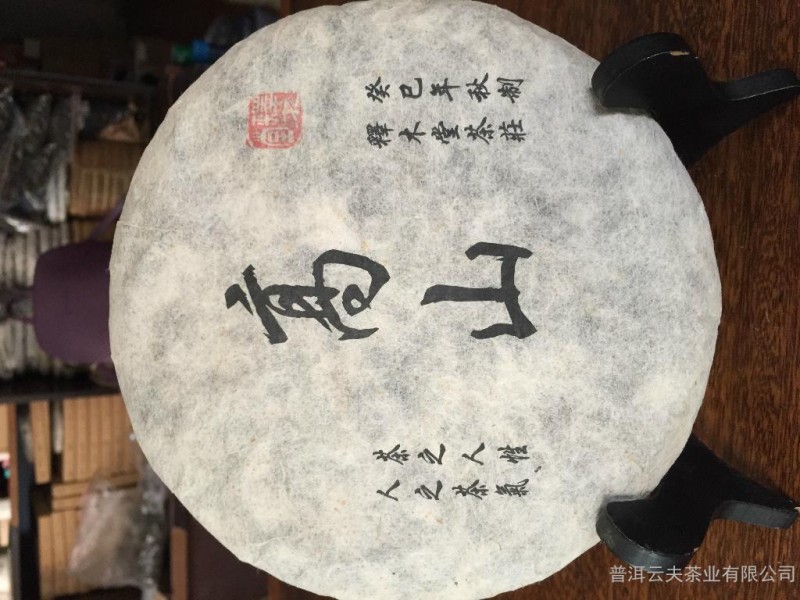 癸巳年秋制
釋木堂茶莊
高山
茶之人性、
人之茶氣
普洱云夫茶业有限公司